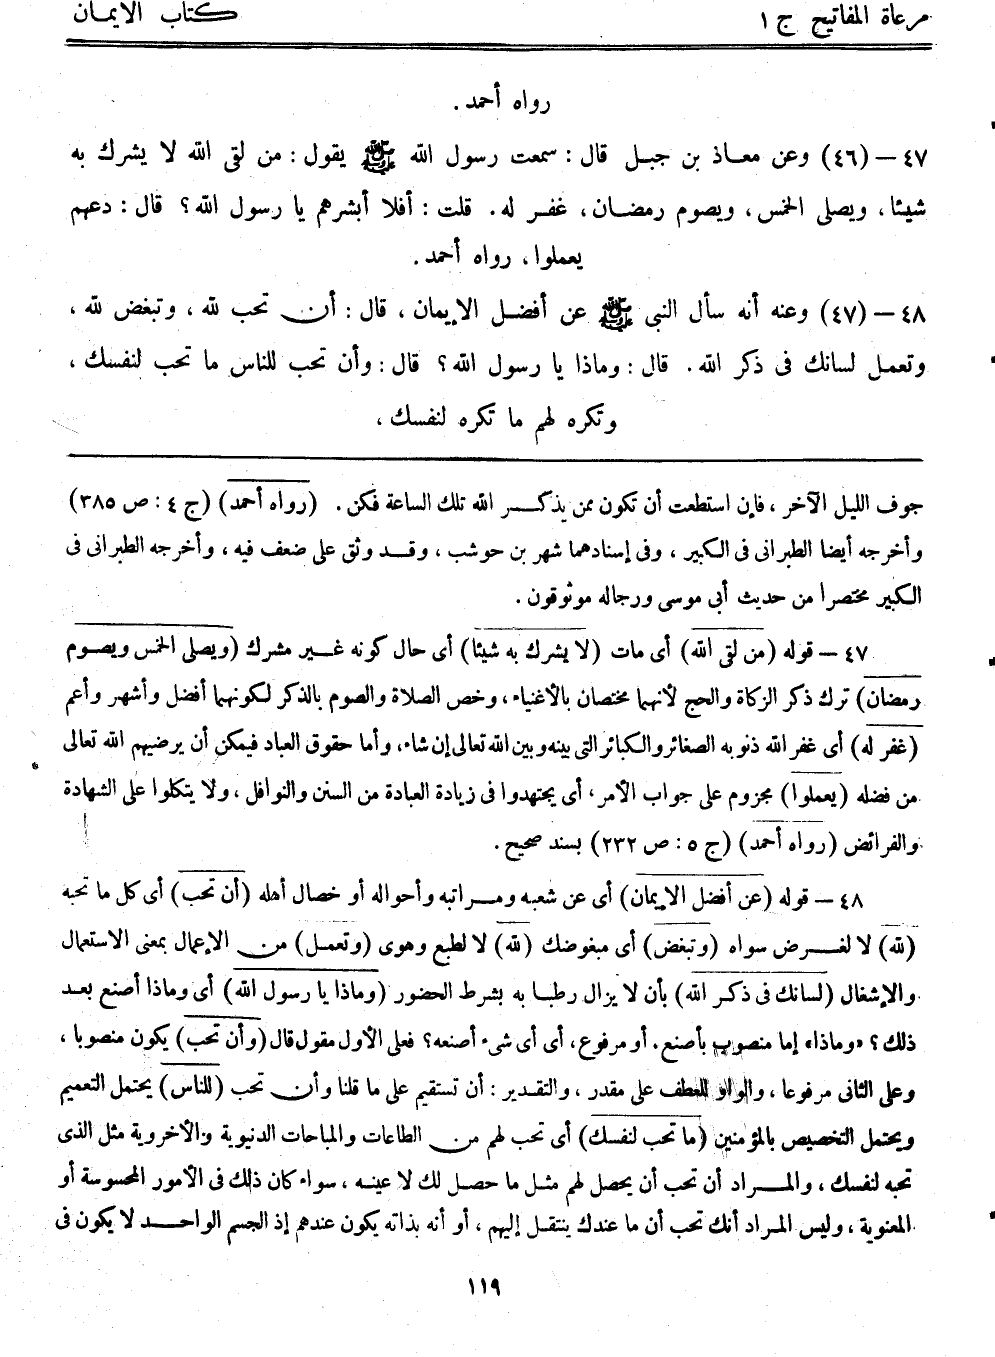 مرعاة المفاتيح ج ١
كتاب الايمان
رواه أحمد .
٤٧ – (٤٦) وعن معاذ بن جبل قال : سمعت رسول الله ﷺ يقول : من لقى الله لا يشرك به
شيئا ، ويصلى الخمس ، ويصوم رمضان ، غفر له . قلت : أفلا أبشرهم يا رسول الله ؟ قال : دعهم
يعملوا ، رواه أحمد .
٤٨ – (٤٧) وعنه أنه سأل النبى ﷺ عن أفضل الإيمان ، قال : أن تحب لله ، وتبغض لله ،
وتعمل لسانك فى ذكر الله . قال : وماذا يا رسول الله ؟ قال : وأن تحب للناس ما تحب لنفسك ،
وتكره لهم ما تكره لنفسك ،
جوف الليل الآخر ، فإن استطعت أن تكون ممن يذكر الله تلك الساعة فكن . (رواه أحمد) (ج ٤ : ص ٣٨٥)
وأخرجه أيضا الطبرانى فى الكبير ، وفى إسنادهما شهر بن حوشب ، وقد وثق على ضعف فيه ، وأخرجه الطبرانى فى
الكبير مختصرا من حديث أبى موسى ورجاله موثوقون .
٤٧ – قوله (من لقى الله) أى مات (لا يشرك به شيئا) أى حال كونه غير مشرك (ويصلى الخمس ويصوم
رمضان) ترك ذكر الزكاة والحج لأنهما مختصان بالأغنياء ، وخص الصلاة والصوم بالذكر لكونهما أفضل وأشهر وأعم
(غفر له) أى غفر الله ذنوبه الصغائر والكبائر التى بينه وبين الله تعالى إن شاء ، وأما حقوق العباد فيمكن أن يرضيهم الله تعالى
من فضله (يعملوا) مجزوم على جواب الأمر ، أى يجتهدوا فى زيادة العبادة من السنن والنوافل ، ولا يتكلوا على الشهادة
والفرائض (رواه أحمد) (ج ٥ : ص ٢٣٢) بسند صحيح .
٤٨ – قوله (عن أفضل الإيمان) أى عن شعبه ومراتبه وأحواله أو خصال أهله (أن تحب) أى كل ما تحبه
(لله) لا لغرض سواه (وتبغض) أى مبغوضك (لله) لا لطبع وهوى (وتعمل) من الإعمال بمعنى الاستعمال
والإشغال (لسانك فى ذكر الله) بأن لا يزال رطبا به بشرط الحضور (وماذا يا رسول الله) أى وماذا أصنع بعد
ذلك ؟ «وماذا» إما منصوب بأصنع . أو مرفوع ، أى أى شىء أصنعه ؟ فعلى الأول مقول قال (وأن تحب) يكون منصوبا ،
وعلى الثانى مرفوعا ، والواو للعطف على مقدر ، والتقدير : أن تستقيم على ما قلنا وأن تحب (للناس) يحتمل التعميم
ويحتمل التخصيص بالمؤمنين (ما تحب لنفسك) أى تحب لهم من الطاعات والمباحات الدنيوية والأخروية مثل الذى
تحبه لنفسك ، والمراد أن تحب أن يحصل لهم مثل ما حصل لك لا عينه ، سواء كان ذلك فى الأمور المحسوسة أو
المعنوية ، وليس المراد أنك تحب أن ما عندك ينتقل إليهم ، أو أنه بذاته يكون عندهم إذ الجسم الواحد لا يكون فى
١١٩